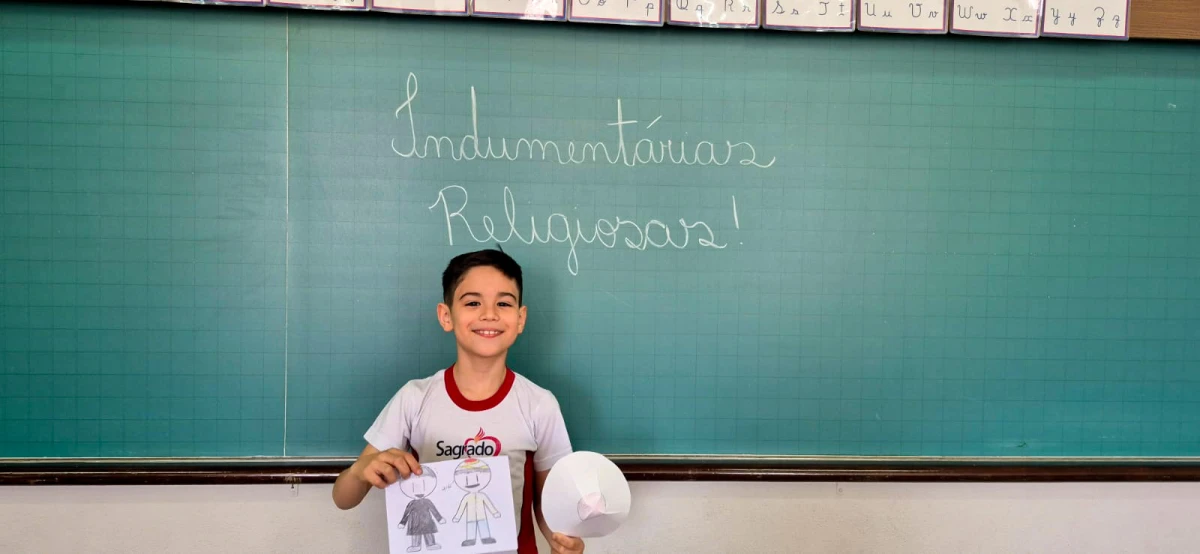 Pp
Qq Rr
Ss Tt
Uu Vv
Ww Xx
Yy Zz
Indumentárias
Religiosas!
Sagrado